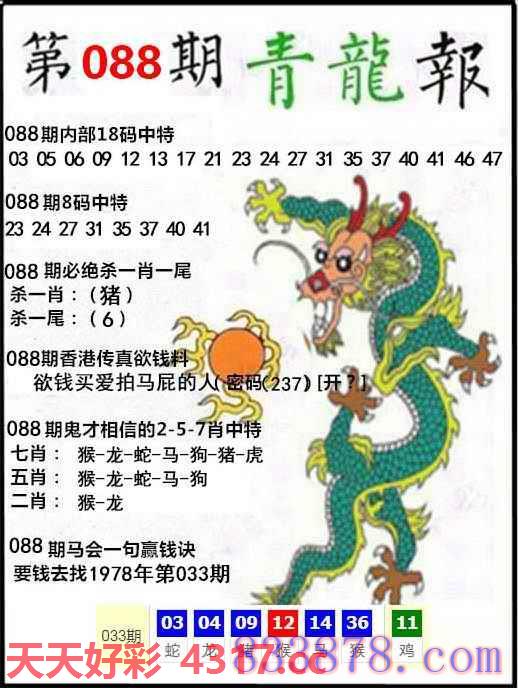 第088期青龍報
088期内部18码中特
03 05 06 09 12 13 17 21 23 24 27 31 35 37 40 41 46 47
088期8码中特
23 24 27 31 35 37 40 41
088 期必绝杀一肖一尾
杀一肖：（猪）
杀一尾：（6）
088期香港传真欲钱料
欲钱买爱拍马屁的人(密码(237)[开？]
088期鬼才相信的2-5-7肖中特
七肖： 猴-龙-蛇-马-狗-猪-虎
五肖： 猴-龙-蛇-马-狗
二肖： 猴-龙
088 期马会一句赢钱诀
要钱去找1978年第033期
033期 03 04 09 12 14 36 11
蛇 龙 猪 猴 马 猴 鸡
天天好彩 4317.cc
833878.com